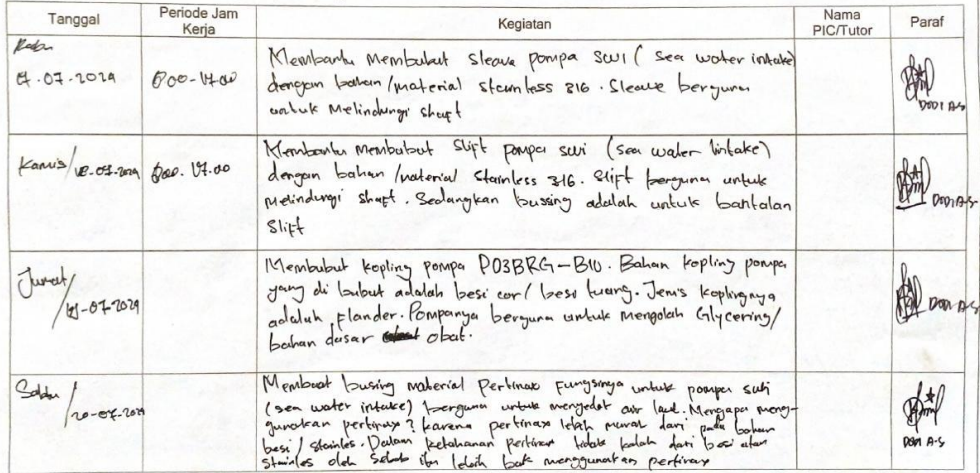 Tanggal
Periode Jam
Kerja
Kegiatan
Nama
PIC/Tutor
Paraf
Rabu
17-07-2024
8.00-17.00
Membantu membubut sleave pompa SWI (sea water intake)
dengan bahan/material stainless 316. Sleave berguna
untuk Melindungi shaft
DODI A.S
Kamis/
18-07-2024
8.00-17.00
Membantu membubut slift pompa swi (sea water intake)
dengan bahan/material stainless 316. Slift berguna untuk
melindungi shaft. Sedangkan bussing adalah untuk bantalan
Slift
DODI A.S
Jumat/
19-07-2024
Membubut kopling pompa P03BRG-B10. Bahan kopling pompa
yang di bubut adalah besi cor/besi tuang. Jenis koplingnya
adalah flander. Pompanya berguna untuk mengolah Glycering/
bahan dasar obat.
DODI A.S
Sabtu
/20-07-2024
Membuat busing material Pertinax Fungsinya untuk pompa swi
(sea water intake) berguna untuk menyedot air laut. Mengapa meng-
gunakan pertinax? karena pertinax lebih murah dari pada bahan
besi/stainles. Dalam ketahanan pertinax tidak kalah dari besi atau
stainles oleh sebab itu lebih baik menggunakan pertinax
DODI A.S